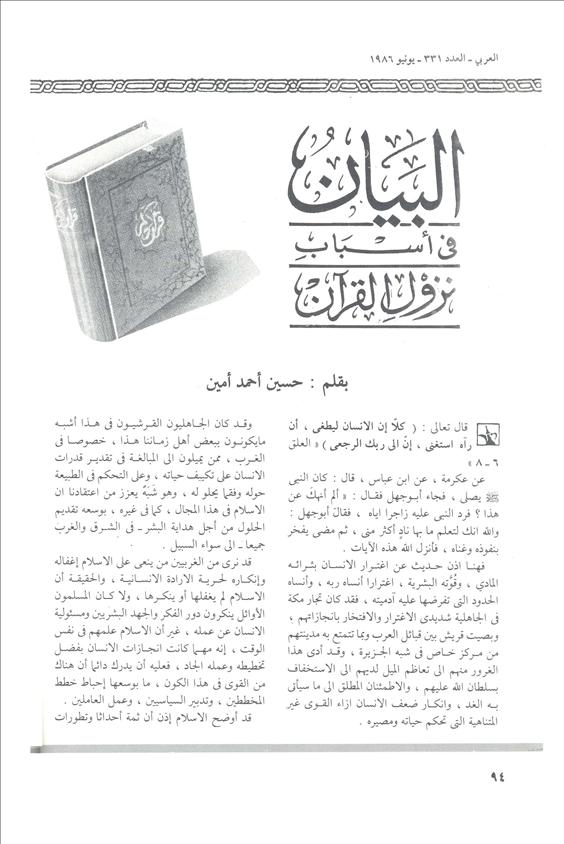 العربي - العدد ٣٣١ - يونيو ١٩٨٦
البيان
في أسباب
نزول القرآن
بقلم : حسين أحمد أمين
قال تعالى : ( كلّا إن الانسان ليطغى ، أن
رآه استغنى ، إنّ الى ربك الرجعى ) « العلق
٦ - ٨ »
عن عكرمة ، عن ابن عباس ، قال : كان النبى
ﷺ يصلى ، فجاء أبوجهل فقال : « ألم أنهك عن
هذا ؟ فرد النبى عليه زاجرا اياه ، فقال أبوجهل :
والله انك لتعلم ما بها نادٍ أكثر منى ، ثم مضى يفخر
بنفوذه وغناه ، فأنزل الله هذه الآيات .
فهنا اذن حديث عن اغترار الانسان بثرائه
المادي ، وقُوَّته البشرية ، اغترارا أنساه ربه ، وأنساه
الحدود التى تفرضها عليه آدميته ، فقد كان تجار مكة
فى الجاهلية شديدى الاغترار والافتخار بانجازاتهم ،
وبصيت قريش بين قبائل العرب وبما تتمتع به مدينتهم
من مركز خاص فى شبه الجزيرة ، وقد أدى هذا
الغرور منهم الى تعاظم الميل لديهم الى الاستخفاف
بسلطان الله عليهم ، والاطمئنان المطلق الى ما سيأتى
به الغد ، وانكار ضعف الانسان ازاء القوى غير
المتناهية التى تحكم حياته ومصيره .
وقد كان الجاهليون القرشيون فى هذا أشبه
مايكونون ببعض أهل زماننا هذا ، خصوصا فى
الغرب ، ممن يميلون الى المبالغة فى تقدير قدرات
الانسان على تكييف حياته ، وعلى التحكم فى الطبيعة
حوله وفقما يحلو له ، وهو شَبَهٌ يعزز من اعتقادنا ان
الاسلام فى هذا المجال ، كما فى غيره ، بوسعه تقديم
الحلول من أجل هداية البشر - فى الشرق والغرب
جميعا - الى سواء السبيل .
قد نرى من الغربيين من ينعى على الاسلام إغفاله
وإنكاره لحرية الارادة الانسانية ، والحقيقة أن
الاسلام لم يغفلها أو ينكرها ، ولا كان المسلمون
الأوائل ينكرون دور الفكر والجهد البشريين ومسئولية
الانسان عن عمله ، غير أن الاسلام علمهم فى نفس
الوقت ، إنه مهما كانت انجازات الانسان بفضل
تخطيطه وعمله الجاد ، فعليه أن يدرك دائما أن هناك
من القوى فى هذا الكون ، ما بوسعها إحباط خطط
المخططين ، وتدبير السياسيين ، وعمل العاملين .
قد أوضح الاسلام إذن أن ثمة أحداثا وتطورات
٩٤